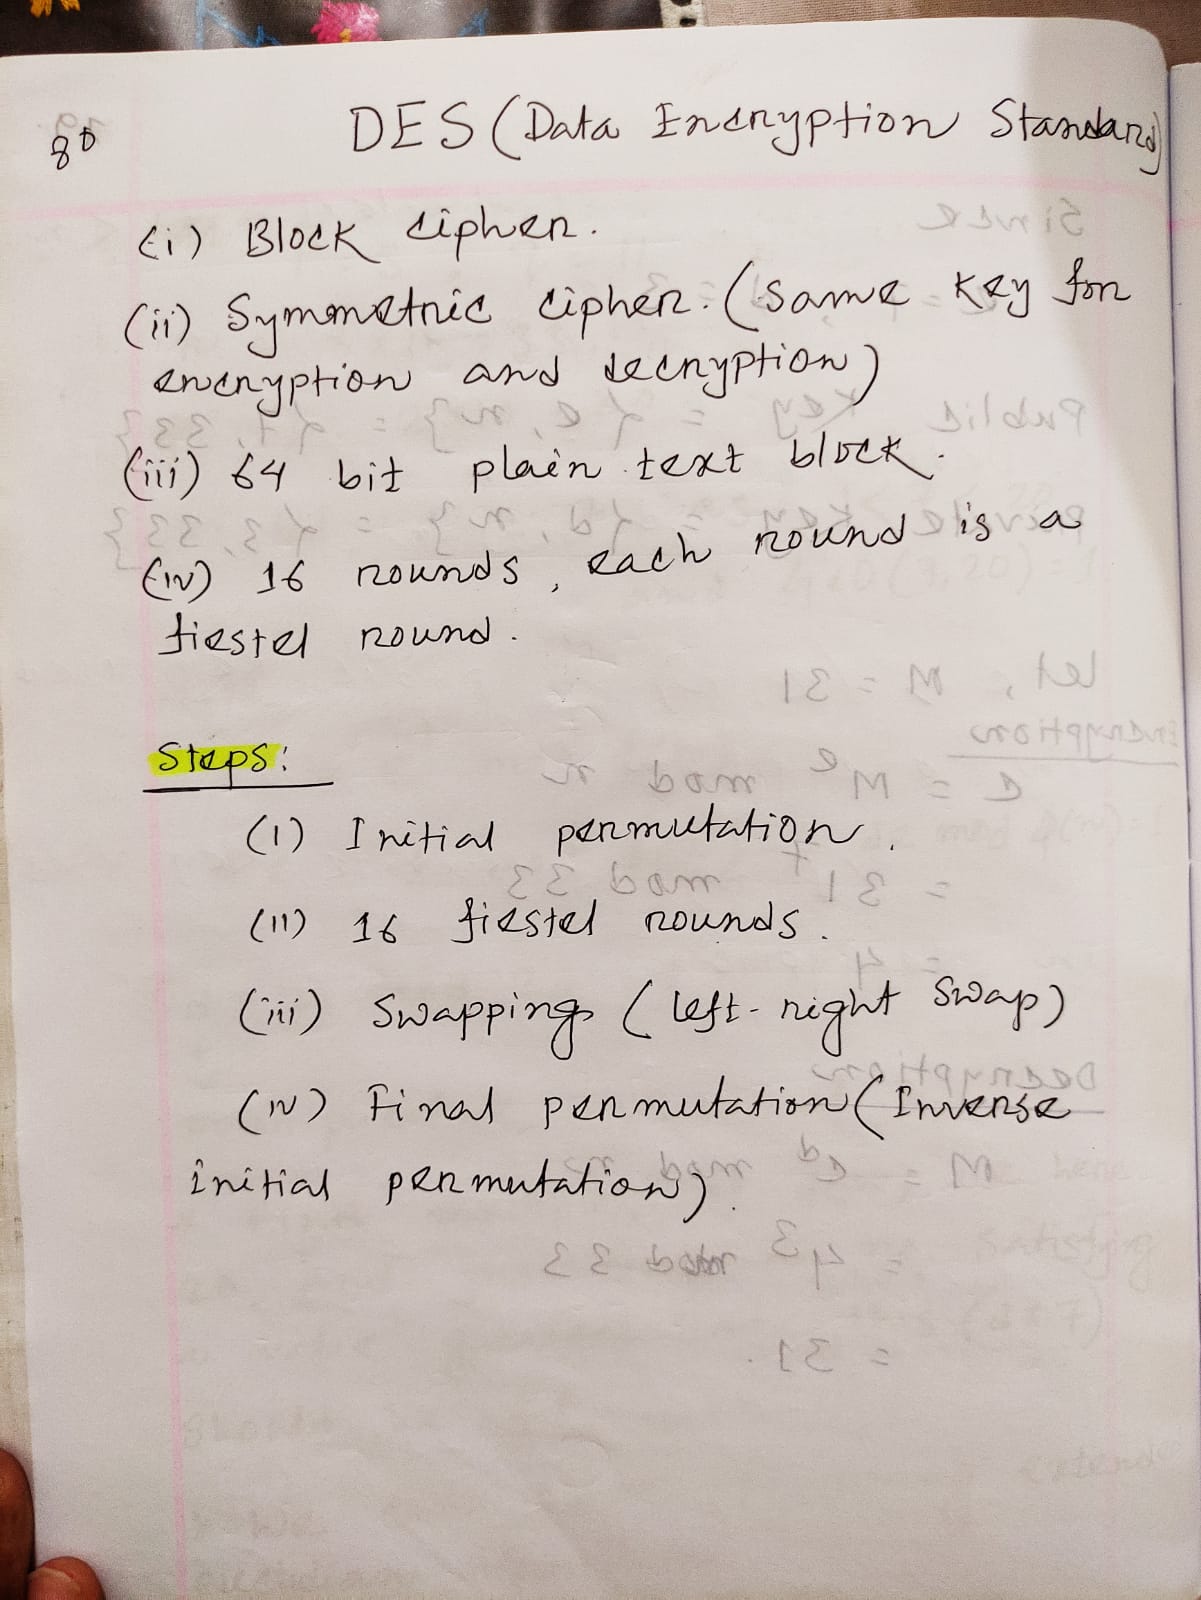 80
DES (Data Encryption Standard)
(i) Block cipher.
(ii) Symmetric cipher. (same key for
encryption and decryption)
(iii) 64 bit plain text block.
(iv) 16 rounds, each round is a
fiestel round.
Steps:
(i) Initial permutation.
(ii) 16 fiestel rounds.
(iii) Swapping (left-right swap)
(iv) Final permutation (Inverse
initial permutation).